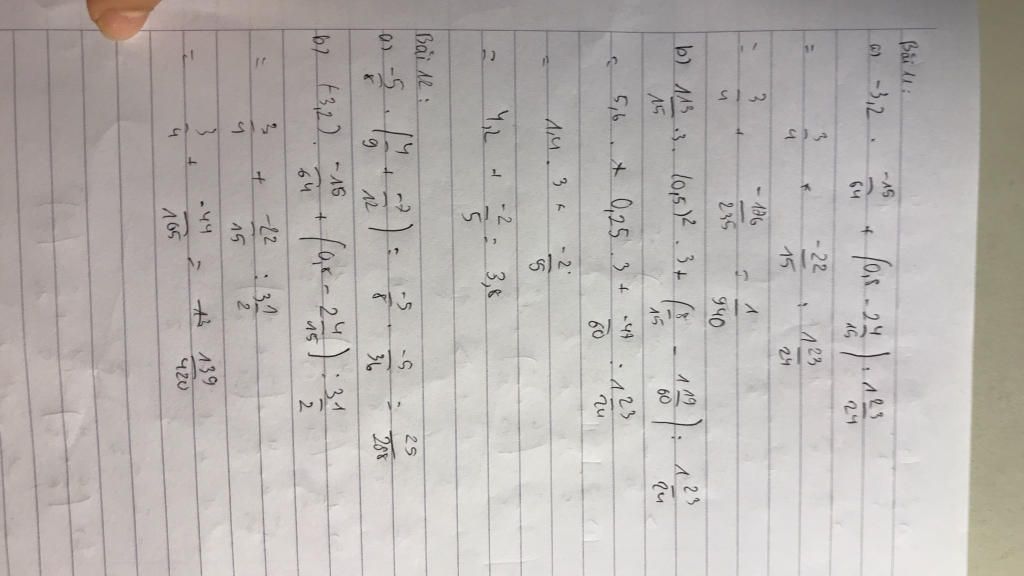 Bài 11:
a) -3,2 . -15/64 + (0,8 - 2 4/15) : 1 23/24
= 3/4 + -22/15 : 1 23/24
= 3/4 + -176/235 = 1/940
b) 1 13/15 . 3 . (0,5)² . 3 + (8/15 - 1 19/60) : 1 23/24
= 5,6 . 0,25 . 3 + -47/60 : 1 23/24
= 1,4 . 3 + -2/5
= 4,2 + -2/5 = 3,8
Bài 12:
a) -5/8 . (4/9 + -7/12) = -5/8 . -5/36 = 25/288
b) (-3,2) . -15/64 + (0,8 - 2 4/15) : 3 1/2
= 3/4 + -22/15 : 3 1/2
= 3/4 + -44/105 = 139/420